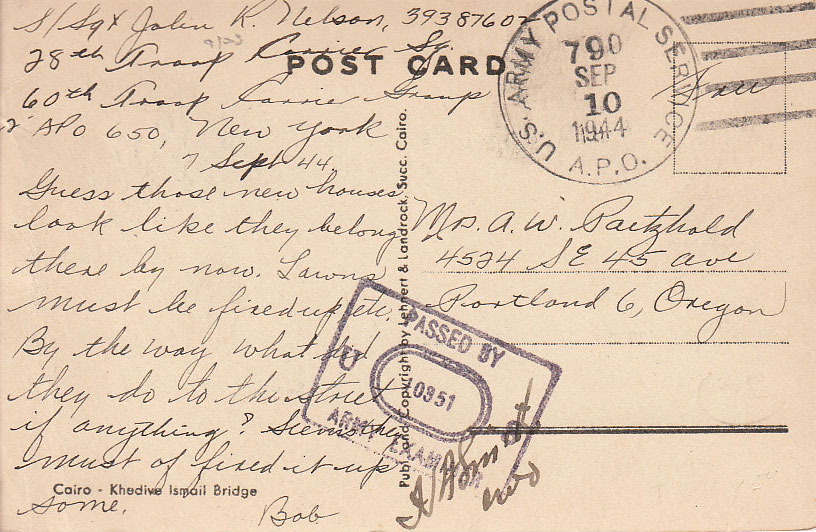 S/Sgt John R. Nelson, 39387602
28th Troop Carrier Sq.
60th Troop Carrier Group
APO 650, New York
7 Sept 44.
Guess those new houses
look like they belong
there by now. Lawns
must be fixed up etc.
By the way what did
they do to the street
if anything? Seems they
must of fixed it up
some.
Bob
Cairo - Khedive Ismail Bridge
POST CARD
Publ. and Copyright by Lehnert & Landrock, Succ. Cairo.
U.S. ARMY POSTAL SERVICE
790
SEP
10
1944
A.P.O.
Free
Mrs. A. W. Paetzhold
4524 SE 45 ave
Portland 6, Oregon
PASSED BY
U
10351
ARMY EXAMINER